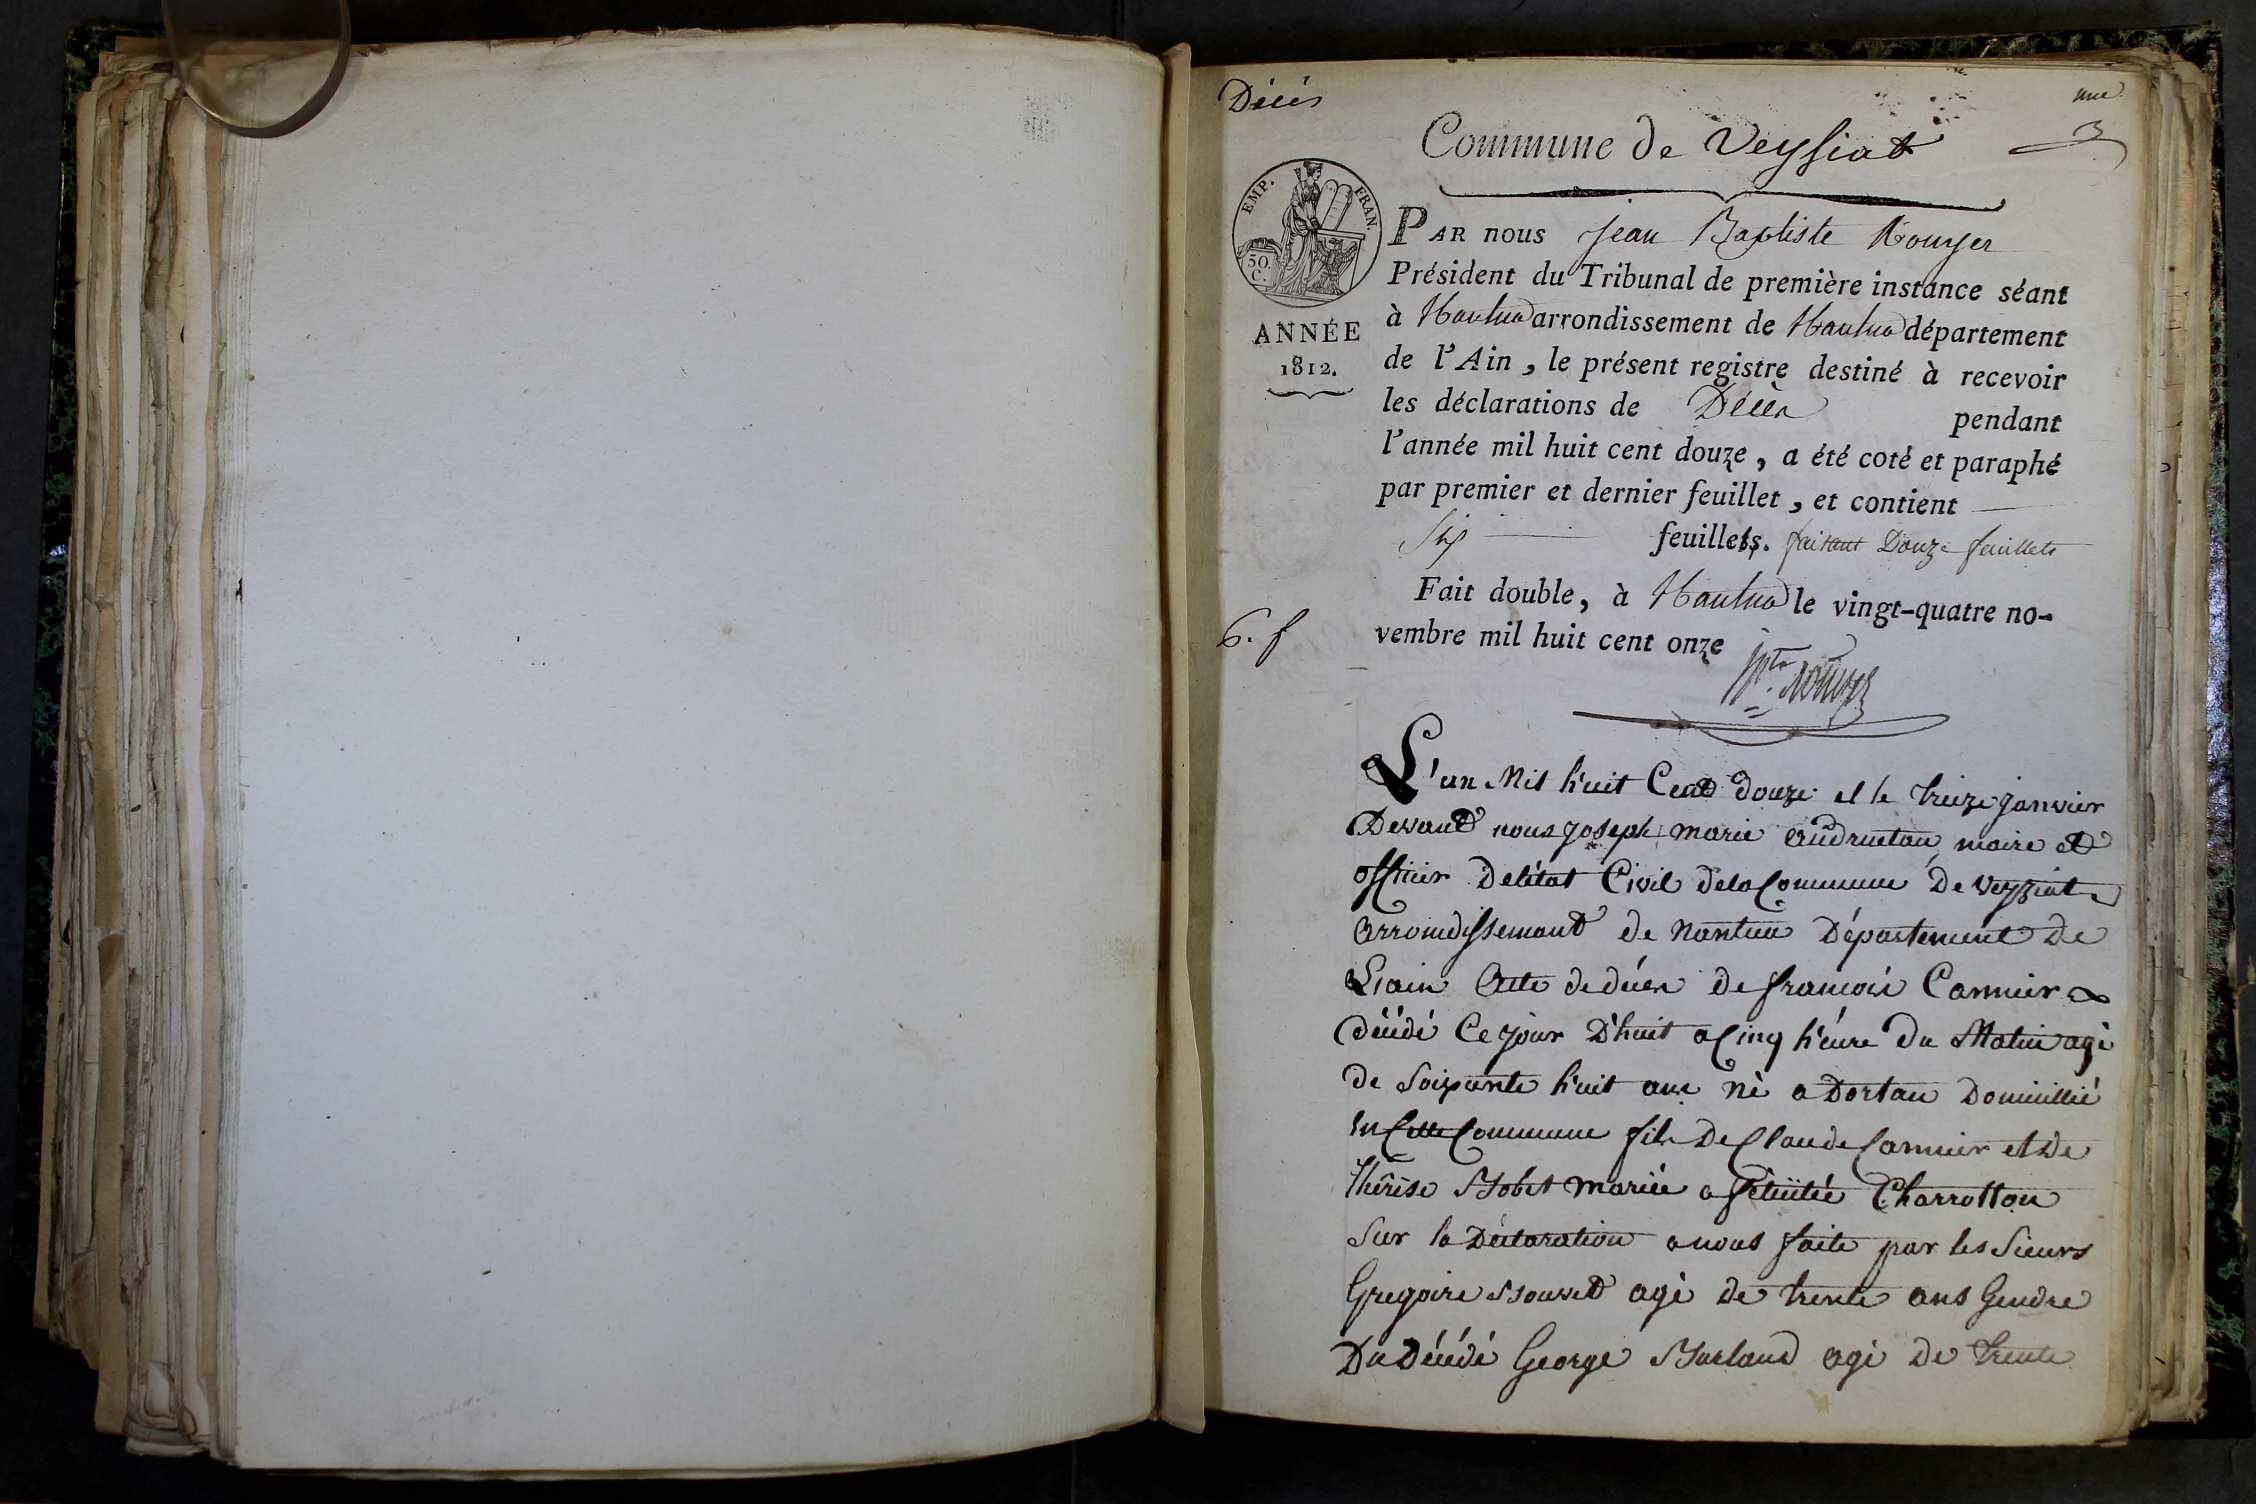 Décès
une
Commune de Veyssiat
EMP. FRAN.
50. C.
ANNÉE
1812.
PAR nous Jean Baptiste Rouyer
Président du Tribunal de première instance séant
à Nantua arrondissement de Nantua département
de l'Ain, le présent registre destiné à recevoir
les déclarations de Décès pendant
l'année mil huit cent douze, a été coté et paraphé
par premier et dernier feuillet, et contient
Six feuillets. faisant Douze feuillets
Fait double, à Nantua le vingt-quatre no-
vembre mil huit cent onze
6. f
L'an Mil huit Cent douze et le treize janvier
Devant nous joseph marie maire et
officier Delétat Civil dela Commune De veyziat
arrondissement de nantua Département De
Liain Acte de décès de françois Carmier
décédé Ce jour D'huit a Cinq h'eure Du Matin agé
de soixante huit ans né a Dortan Domicillié
en Cette Commune fils De Claude Carmier et De
thérèse mariée a Charrotton
Sur la Déclaration a nous faite par les Sieurs
Gregoire agé de trente ans Gendre
Du Décédé George agé De trente